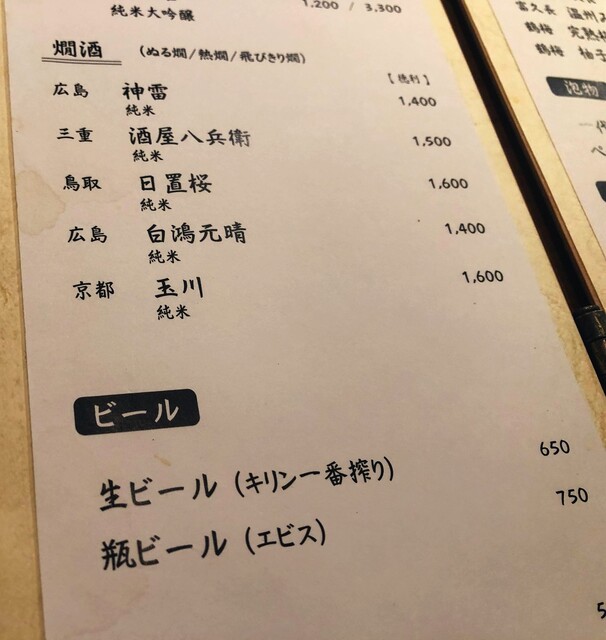 純米大吟醸 1,200 / 3,300
燗酒 (ぬる燗/熱燗/飛びきり燗)
【徳利】
広島 神雷 1,400
純米
三重 酒屋八兵衛 1,500
純米
鳥取 日置桜 1,600
純米
広島 白鴻元晴 1,400
純米
京都 玉川 1,600
純米
ビール
生ビール (キリン一番搾り) 650
瓶ビール (エビス) 750
富久長 温州
鶴梅 完熟
鶴梅 柚子
泡物
一代